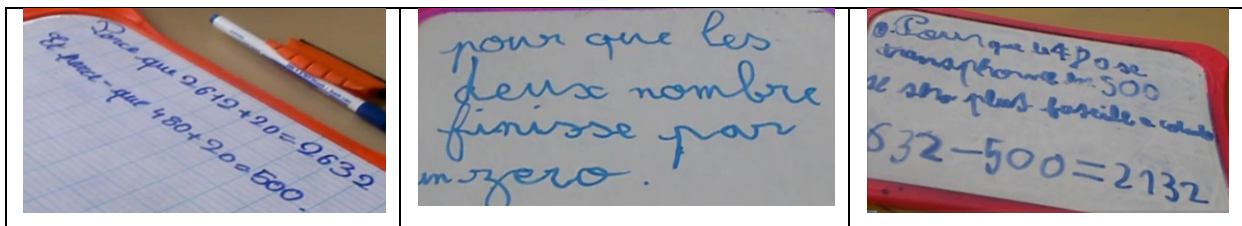 Parce que 2612+20=2632
Et parce-que 480+20=500.
pour que les
deux nombre
finisse par
un zero.
Pour que le 480 se
transphorme en 500
plus a
632-500=2132